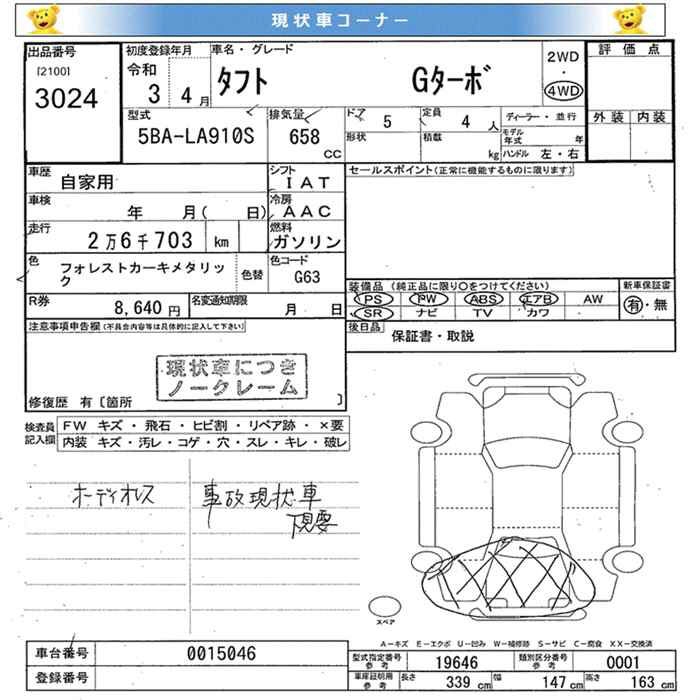 現状車コーナー
出品番号
[2100]
3024
初度登録年月
令和
3 4月
車名・グレード
タフト Gターボ
2WD
・
4WD
評価点
外装 内装
型式
5BA-LA910S
排気量
658
CC
ドア
5
定員
4 人
ディーラー・並行
形状
積載
kg
モデル
年式 年
ハンドル 左・右
車歴
自家用
シフト
IAT
セールスポイント(正常に機能するものに限ります)
車検
年 月( 日)
冷房
AAC
走行
2万6千703 km
燃料
ガソリン
色
フォレストカーキメタリッ
ク
色替
色コード
G63
装備品(純正品に限り○をつけてください)
新車保証書
PS PW ABS エアB AW
SR ナビ TV カワ
有・無
R券
8,640 円
名変通知期限
月 日
後日品
保証書・取説
注意事項申告欄(不具合内容等は具体的に記入して下さい)
現状車につき
ノークレーム
修復歴 有〔箇所 〕
検査員
記入欄
FW キズ・飛石・ヒビ割・リペア跡・×要
内装 キズ・汚レ・コゲ・穴・スレ・キレ・破レ
オーディオレス
事故現状車
下見要
スペア
A-キズ E-エクボ U-凹み W-補修跡 S-サビ C-腐食 XX-交換済
車台番号
0015046
登録番号
型式指定番号
参考
19646
類別区分番号
参考
0001
車庫証明用
参考
長さ
339 cm
幅
147 cm
高さ
163 cm